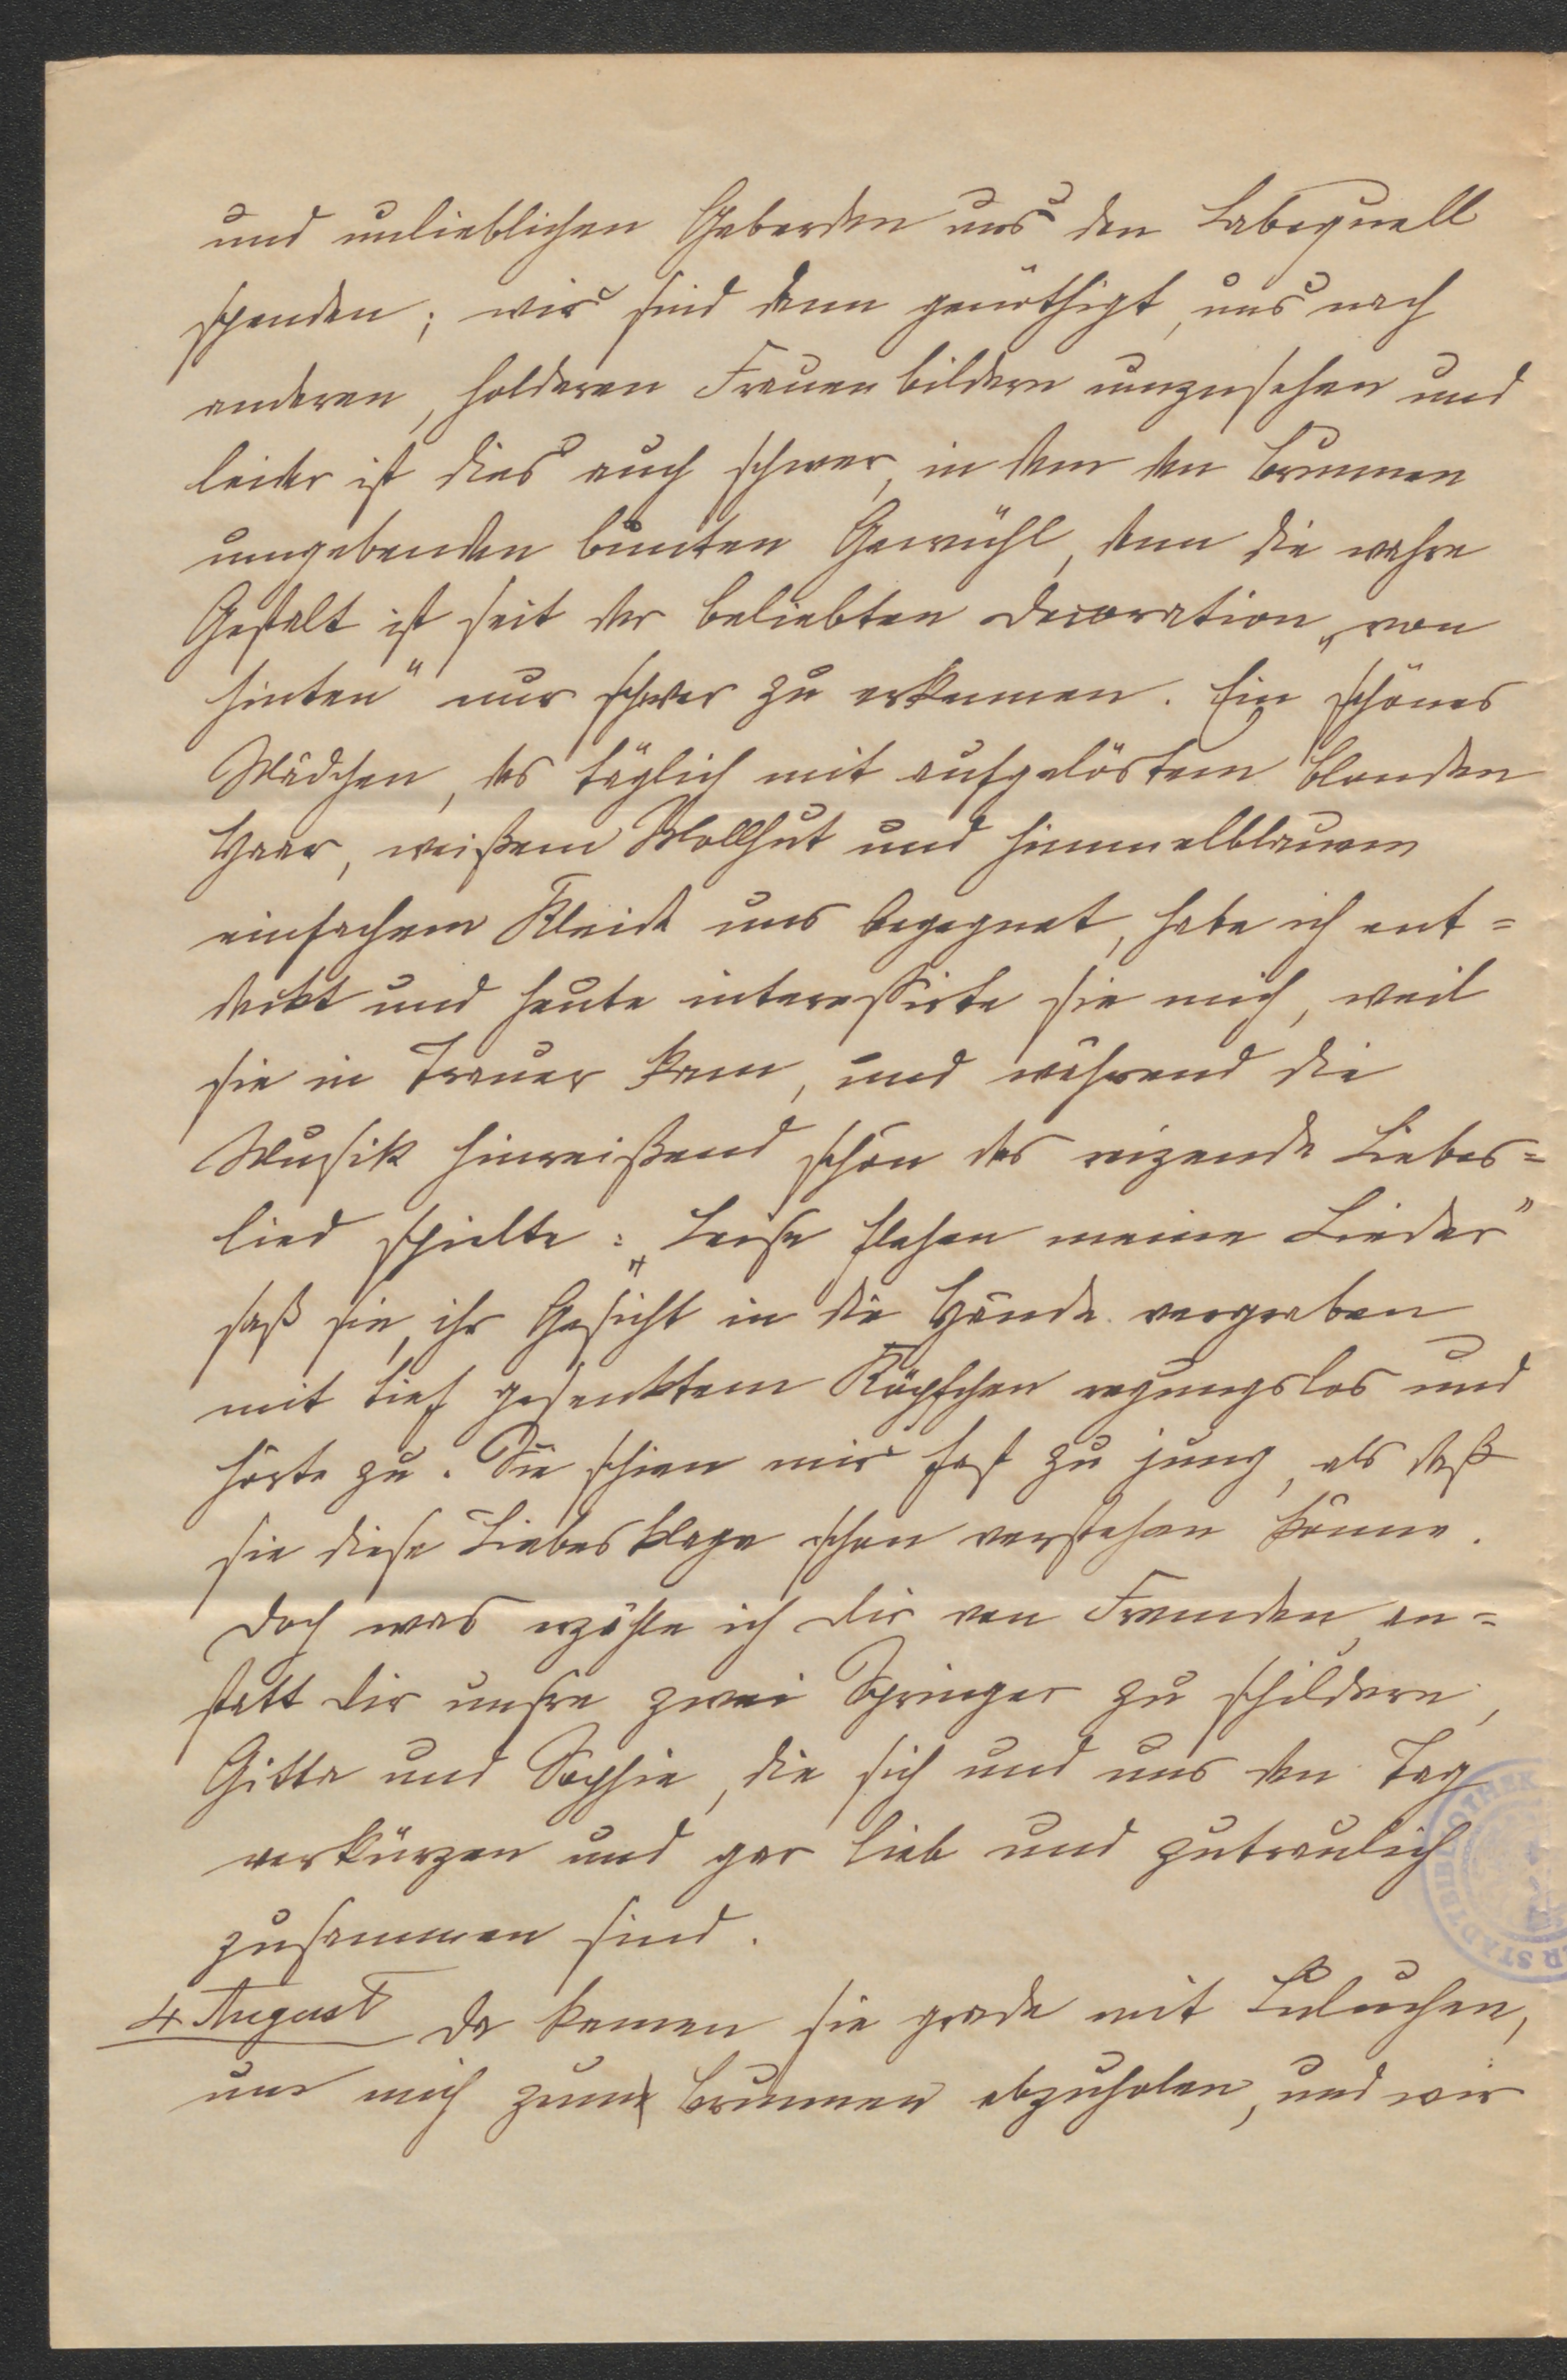 und unlieblichen Geberden uns den Labequell
spenden; wir sind denn genöthigt, uns nach
anderen, holderen Frauenbildern umzusehen und
leider ist dies auch schwer, in dem den Brunnen
umgebenden bunten Gewühl, denn die wahre
Gestalt ist seit der beliebten Decoration „von
hinten" nur schwer zu erkennen. Ein schönes
Mädchen, das täglich mit aufgelöstem blonden
Haar, weißem Mollhut und himmelblauem
einfachem Kleide uns begegnet, habe ich ent=
deckt und heute interessirte sie mich, weil
sie in Trauer kam, und während die
Musik hinreißend schön das reizende Liebes=
lied spielte: „Leise flehen meine Lieder"
saß sie, ihr Gesicht in die Hände vergraben
mit tief gesenktem Köpfchen regungslos und
hörte zu. Sie schien mir fast zu jung, als daß
sie diese Liebesklage schon verstehen könne.
Doch was erzähle ich Dir von Fremden, an=
statt Dir unsre zwei Springer zu schildern,
Gitta und Sophie, die sich und uns den Tag
verkürzen und gar lieb und zutraulich
zusammen sind.
4 August Da kamen sie grade mit Luluchen,
um mich zum Brunnen abzuholen, und wir